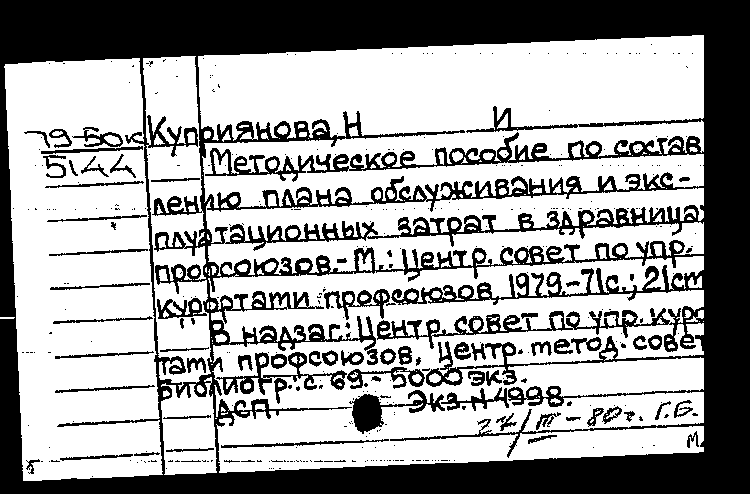 79-50к Куприянова, Н И
5144 Методическое пособие по состав
лению плана обслуживания и экс-
плуатационных затрат в здравница
профсоюзов.-М.: Центр. совет по упр.
курортами профсоюзов, 1979.-71с.; 21см
В надзаг.: Центр. совет по упр. куро
тами профсоюзов, Центр. метод. совет
Библиогр.: с. 69.- 5000 экз.
ДСП. Экз. N 4998.
27/III-80г. Г.Б.